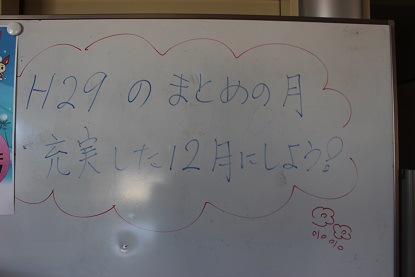 H29 のまとめの月
充実した12月にしよう!